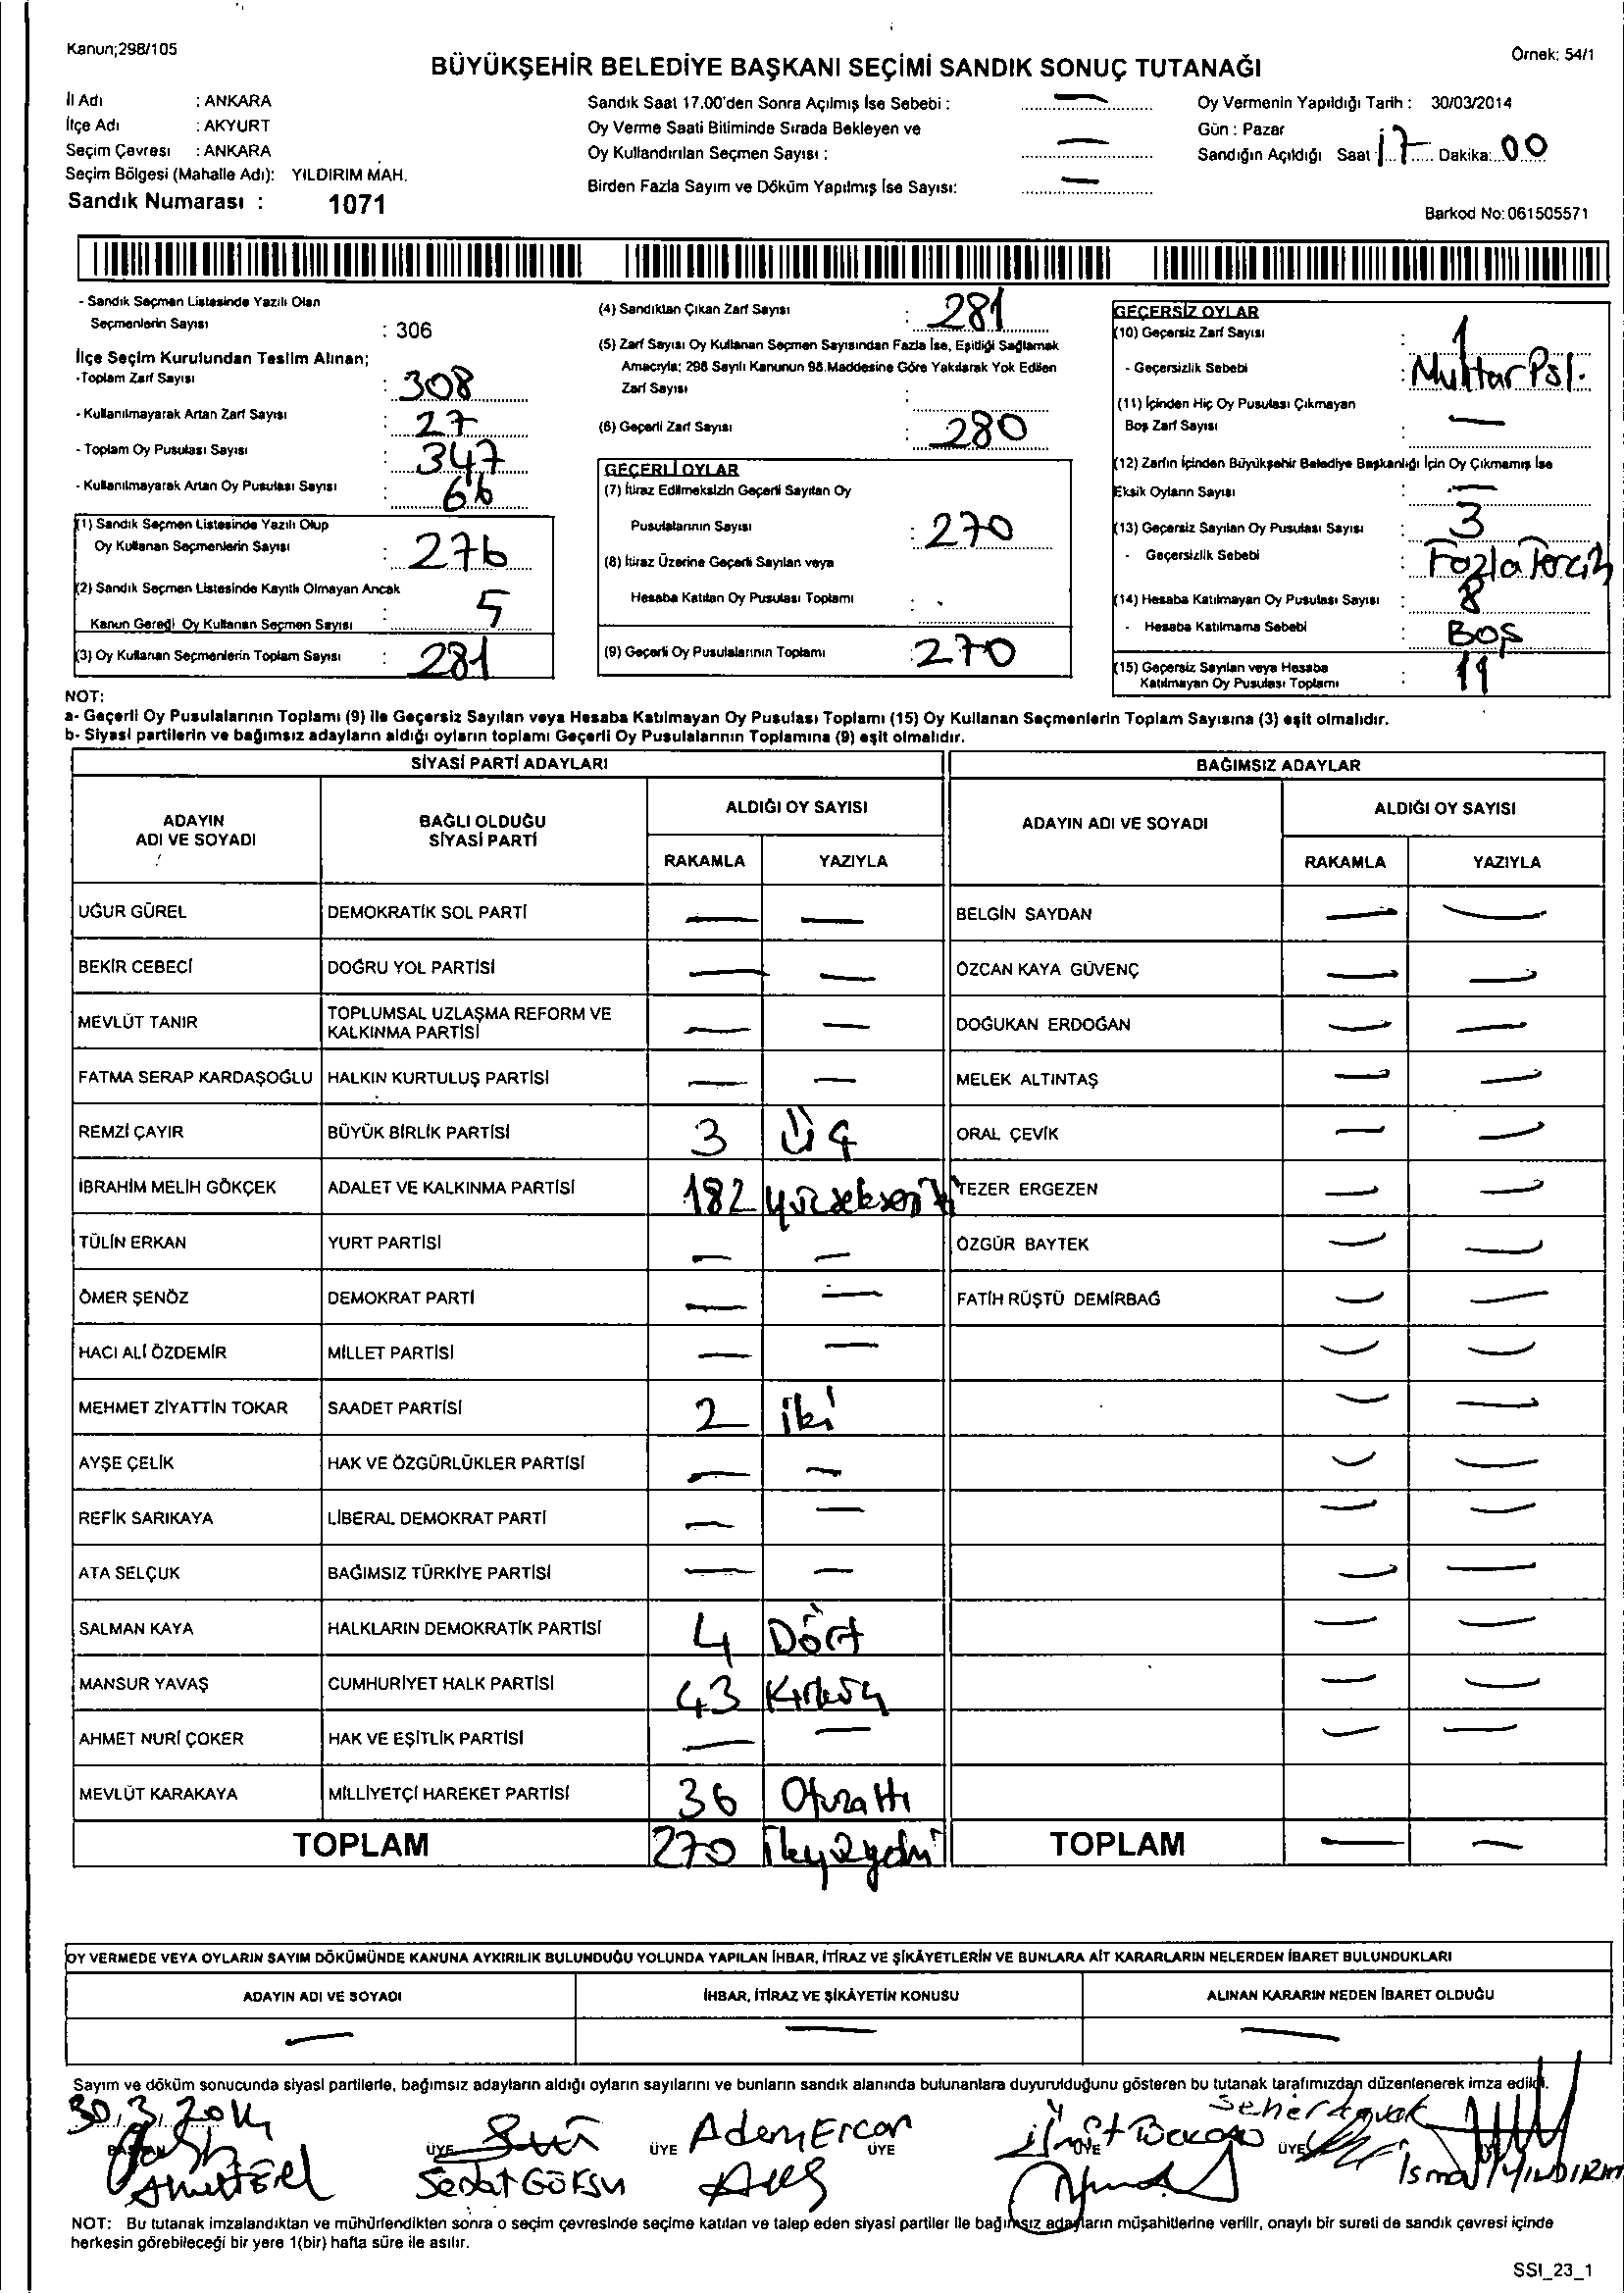 Kanun;298/105
Örnek: 54/1
BÜYÜKŞEHİR BELEDİYE BAŞKANI SEÇİMİ SANDIK SONUÇ TUTANAĞI
İl Adı : ANKARA
İlçe Adı : AKYURT
Seçim Çevresi : ANKARA
Seçim Bölgesi (Mahalle Adı): YILDIRIM MAH.
Sandık Numarası : 1071
Sandık Saat 17.00'den Sonra Açılmış İse Sebebi : —
Oy Verme Saati Bitiminde Sırada Bekleyen ve
Oy Kullandırılan Seçmen Sayısı : —
Birden Fazla Sayım ve Döküm Yapılmış İse Sayısı: —
Oy Vermenin Yapıldığı Tarih : 30/03/2014
Gün : Pazar
Sandığın Açıldığı Saat 17 Dakika: 00
Barkod No:061505571
- Sandık Seçmen Listesinde Yazılı Olan
Seçmenlerin Sayısı : 306
İlçe Seçim Kurulundan Teslim Alınan;
-Toplam Zarf Sayısı : 308
- Kullanılmayarak Artan Zarf Sayısı : 27
- Toplam Oy Pusulası Sayısı : 347
- Kullanılmayarak Artan Oy Pusulası Sayısı : 66
(1) Sandık Seçmen Listesinde Yazılı Olup
Oy Kullanan Seçmenlerin Sayısı : 276
(2) Sandık Seçmen Listesinde Kayıtlı Olmayan Ancak
Kanun Gereği Oy Kullanan Seçmen Sayısı : 5
(3) Oy Kullanan Seçmenlerin Toplam Sayısı : 281
(4) Sandıktan Çıkan Zarf Sayısı : 281
(5) Zarf Sayısı Oy Kullanan Seçmen Sayısından Fazla İse, Eşitliği Sağlamak
Amacıyla; 298 Sayılı Kanunun 98.Maddesine Göre Yakılarak Yok Edilen
Zarf Sayısı :
(6) Geçerli Zarf Sayısı : 280
GEÇERLİ OYLAR
(7) İtiraz Edilmeksizin Geçerli Sayılan Oy
Pusulalarının Sayısı : 270
(8) İtiraz Üzerine Geçerli Sayılan veya
Hesaba Katılan Oy Pusulası Toplamı :
(9) Geçerli Oy Pusulalarının Toplamı : 270
GEÇERSİZ OYLAR
(10) Geçersiz Zarf Sayısı : 1
- Geçersizlik Sebebi : Muhtar Psl.
(11) İçinden Hiç Oy Pusulası Çıkmayan
Boş Zarf Sayısı : —
(12) Zarfın İçinden Büyükşehir Belediye Başkanlığı İçin Oy Çıkmamış İse
Eksik Oyların Sayısı : —
(13) Geçersiz Sayılan Oy Pusulası Sayısı : 3
- Geçersizlik Sebebi : Fazla Tercih
(14) Hesaba Katılmayan Oy Pusulası Sayısı : 8
- Hesaba Katılmama Sebebi : Boş
(15) Geçersiz Sayılan veya Hesaba
Katılmayan Oy Pusulası Toplamı : 11
NOT:
a- Geçerli Oy Pusulalarının Toplamı (9) ile Geçersiz Sayılan veya Hesaba Katılmayan Oy Pusulası Toplamı (15) Oy Kullanan Seçmenlerin Toplam Sayısına (3) eşit olmalıdır.
b- Siyasi partilerin ve bağımsız adayların aldığı oyların toplamı Geçerli Oy Pusulalarının Toplamına (9) eşit olmalıdır.
SİYASİ PARTİ ADAYLARI
ADAYIN
ADI VE SOYADI
BAĞLI OLDUĞU
SİYASİ PARTİ
ALDIĞI OY SAYISI
RAKAMLA YAZIYLA
UĞUR GÜREL DEMOKRATİK SOL PARTİ — —
BEKİR CEBECİ DOĞRU YOL PARTİSİ — —
MEVLÜT TANIR TOPLUMSAL UZLAŞMA REFORM VE
KALKINMA PARTİSİ — —
FATMA SERAP KARDAŞOĞLU HALKIN KURTULUŞ PARTİSİ — —
REMZİ ÇAYIR BÜYÜK BİRLİK PARTİSİ 3 Üç
İBRAHİM MELİH GÖKÇEK ADALET VE KALKINMA PARTİSİ 182 yüzsekseniki
TÜLİN ERKAN YURT PARTİSİ — —
ÖMER ŞENÖZ DEMOKRAT PARTİ — —
HACI ALİ ÖZDEMİR MİLLET PARTİSİ — —
MEHMET ZİYATTİN TOKAR SAADET PARTİSİ 2 iki
AYŞE ÇELİK HAK VE ÖZGÜRLÜKLER PARTİSİ — —
REFİK SARIKAYA LİBERAL DEMOKRAT PARTİ — —
ATA SELÇUK BAĞIMSIZ TÜRKİYE PARTİSİ — —
SALMAN KAYA HALKLARIN DEMOKRATİK PARTİSİ 4 Dört
MANSUR YAVAŞ CUMHURİYET HALK PARTİSİ 43 Kırküç
AHMET NURİ ÇOKER HAK VE EŞİTLİK PARTİSİ — —
MEVLÜT KARAKAYA MİLLİYETÇİ HAREKET PARTİSİ 36 Otuzaltı
TOPLAM 270
BAĞIMSIZ ADAYLAR
ADAYIN ADI VE SOYADI
ALDIĞI OY SAYISI
RAKAMLA YAZIYLA
BELGİN SAYDAN — —
ÖZCAN KAYA GÜVENÇ — —
DOĞUKAN ERDOĞAN — —
MELEK ALTINTAŞ — —
ORAL ÇEVİK — —
TEZER ERGEZEN — —
ÖZGÜR BAYTEK — —
FATİH RÜŞTÜ DEMİRBAĞ — —
TOPLAM — —
OY VERMEDE VEYA OYLARIN SAYIM DÖKÜMÜNDE KANUNA AYKIRILIK BULUNDUĞU YOLUNDA YAPILAN İHBAR, İTİRAZ VE ŞİKÂYETLERİN VE BUNLARA AİT KARARLARIN NELERDEN İBARET BULUNDUKLARI
ADAYIN ADI VE SOYADI İHBAR, İTİRAZ VE ŞİKÂYETİN KONUSU ALINAN KARARIN NEDEN İBARET OLDUĞU
— — —
Sayım ve döküm sonucunda siyasi partilerle, bağımsız adayların aldığı oyların sayılarını ve bunların sandık alanında bulunanlara duyurulduğunu gösteren bu tutanak tarafımızdan düzenlenerek imza edildi.
30.3.2014
BAŞKAN ÜYE Adem Ercan ÜYE ÜYE ÜYE
Sedat GÖKSU İsmail YILDIRIM
NOT: Bu tutanak imzalandıktan ve mühürlendikten sonra o seçim çevresinde seçime katılan ve talep eden siyasi partiler ile bağımsız adayların müşahitlerine verilir, onaylı bir sureti de sandık çevresi içinde
herkesin görebileceği bir yere 1(bir) hafta süre ile asılır.
SSI_23_1